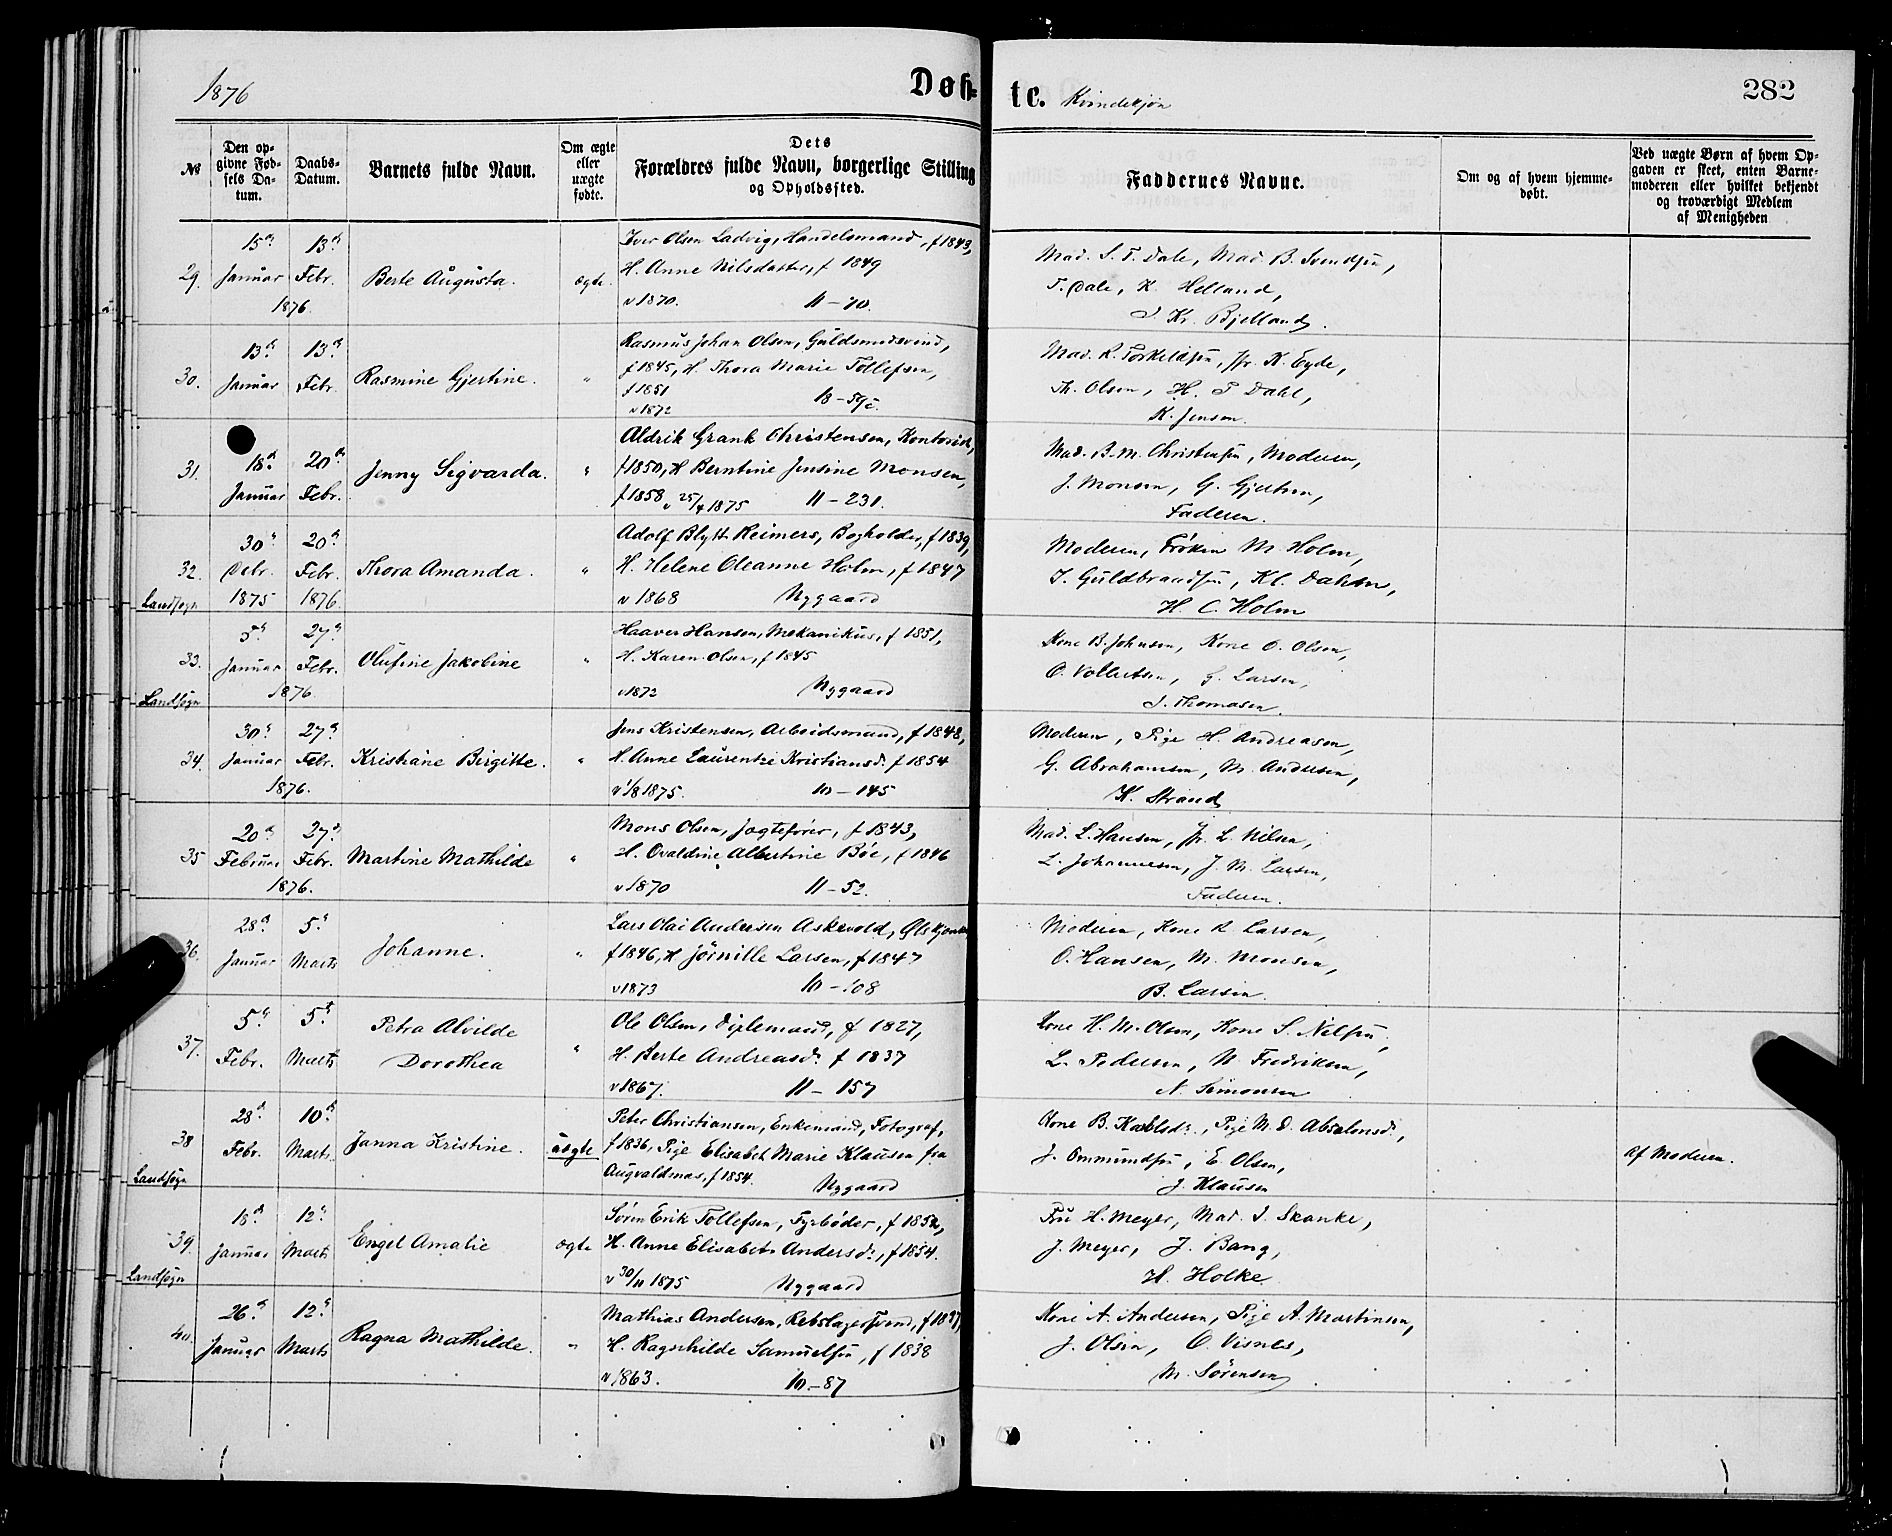 1876 Døb- te. Kvindekjøn 282
№ Den opgivne Fødsels Datum. Daabs-Datum. Barnets fulde Navn. Om ægte eller uægte fødte. Dets Forældres fulde Navn, borgerlige Stilling og Opholdssted. Faddernes Navne. Om og af hvem hjemmedøbt. Ved uægte Børn af hvem Opgaven er skeet, enten Barnemoderen eller hvilket bekjendt og troværdigt Medlem af Menigheden
29. 15de Januar 1876. 13de Febr. Berte Augusta. ægte.
Iver Olsen Ladvig, Handelsmand, f 1843,
H. Anne Nilsdatter, f 1849
v 1870. 11-70.
Mad. S. T. Dale, Mad. B. Svendsen,
T. Dale, K. Helland,
J. Kr. Bjelland.
30. 13de Januar 13de Febr. Rasmine Gjertine. "
Rasmus Johan Olsen, Guldsmedsvend,
f 1845, H. Thora Marie Tollefsen,
f 1851
v 1872
Mad. R. Torkeldsen, K. Eyde,
Th. Olsen, H. T Dahl,
K. Jensen.
31. 18de Januar 20de Febr. Jenny Sigvarda. "
Aldrik Grank Christensen, Kontorist,
f 1850, H Berntine Jensine Monsen,
f 1858 v 25/4 1875 11-231.
Mad. B. M. Christensen, Moderen,
J. Monsen, G. Gjertsen,
Faderen.
32. Landsogn 30de Debr. 1875 20de Febr. 1876. Thora Amanda. "
Adolf Blytt Reimers, Bogholder, f 1839,
H. Helene Oleanne Holm, f 1847
v 1868 Nygaard
Moderen, Frøken M. Holm,
J. Guldbrandsen, Kl. Dahm,
H. C. Holm
33. Landsogn 5te Januar 1876. 27de Febr. Olufine Jakobine "
Haaver Hansen, Mekanikus, f 1851,
H. Karen Olsen, f 1845
v 1872 Nygaard
Kone B. Johnsen, Kone O. Olsen,
O. Vollertsen, G. Larsen,
J. Thomasen.
34. 30de Januar 1876. 27de Febr. Kristiane Birgitte. "
Jens Kristensen, Arbeidsmand, f 1848,
H. Anne Laurentze Kristiansd. f 1854
v 1/8 1875. 10-145
Moderen, Pige H. Andreasen,
G. Abrahamsen, M. Andersen,
K. Strand
35 20de Februar 1876. 27de Febr. Martine Mathilde "
Mons Olsen, Jagtefører, f 1843,
H. Ovaldine Albertine Bøe, f 1846
v 1870 11-52.
Mad. L. Hansen, L. Nilsen,
L. Johannesen, J. M. Larsen,
Faderen.
36. 28de Januar 5te Marts Johanne. "
Lars Olai Andersen Askevold,
f 1846, H Jørnille Larsen, f 1847
v 1873 10-108
Moderen, Kone R. Larsen,
O. Hansen, M. Monsen,
B. Larsen.
37. 5te Febr. 5te Marts Petra Alvilde Dorothea "
Ole Olsen, f 1827,
H. Berte Andreasd. f 1837
v 1867. 11-157
Kone H. M. Olsen, Kone S. Nelsen,
L. Pedersen, N. Fredriksen,
N. Simonsen
38 Landsogn 28de Febr. 10de Marts. Janna Kristine. uægte
Peter Christiansen, Enkemand, Fotograf,
f 1836, Pige Elisabet Marie Klausen fra
Augvaldsnæs, f 1854. Nygaard
Kone B. Karlsdr., Pige M. D. Absalonsd.,
J. Ommundsen, E. Olsen,
J. Klausen
Af Moderen.
39. Landsogn 18de Januar 12te Marts Engel Amalie ægte
Søren Erik Tollefsen, Fyrbøder, f 1852,
H. Anne Elisabet Andersd., f 1854.
v 30/11 1875 Nygaard
Fru H. Meyer, Mad. J. Skanke,
J. Meyer, J. Bang,
H. Holke
40. 26de Januar 12te Marts Ragna Mathilde. "
Mathias Andersen, Rebslagersvend, f 1837,
H. Ragnhilde Samuelsen, f 1838
v 1863. 10-87
Kone A. Andersen, Pige A. Martinsen,
J. Olsen, O. Visnes,
M. Sørensen